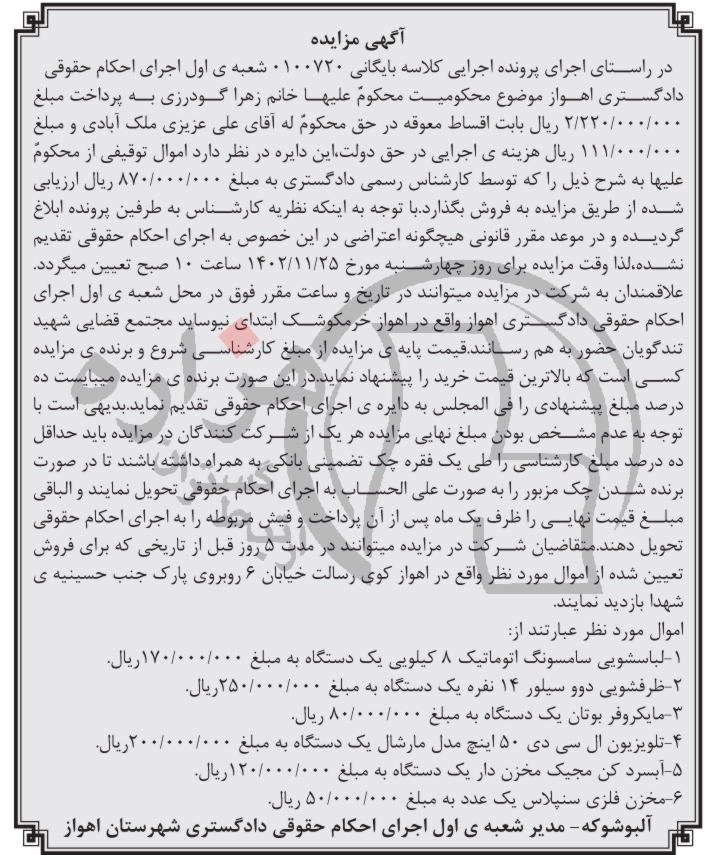 آگهی مزایده
در راستای اجرای پرونده اجرایی کلاسه بایگانی ۰۱۰۰۷۲۰ شعبه ی اول اجرای احکام حقوقی
دادگستری اهواز موضوع محکومیت محکومٌ علیها خانم زهرا گودرزی به پرداخت مبلغ
۲/۲۲۰/۰۰۰/۰۰۰ ریال بابت اقساط معوقه در حق محکومٌ له آقای علی عزیزی ملک آبادی و مبلغ
۱۱۱/۰۰۰/۰۰۰ ریال هزینه ی اجرایی در حق دولت،این دایره در نظر دارد اموال توقیفی از محکومٌ
علیها به شرح ذیل را که توسط کارشناس رسمی دادگستری به مبلغ ۸۷۰/۰۰۰/۰۰۰ ریال ارزیابی
شده از طریق مزایده به فروش بگذارد.با توجه به اینکه نظریه کارشناس به طرفین پرونده ابلاغ
گردیده و در موعد مقرر قانونی هیچگونه اعتراضی در این خصوص به اجرای احکام حقوقی تقدیم
نشده،لذا وقت مزایده برای روز چهارشنبه مورخ ۱۴۰۲/۱۱/۲۵ ساعت ۱۰ صبح تعیین میگردد.
علاقمندان به شرکت در مزایده میتوانند در تاریخ و ساعت مقرر فوق در محل شعبه ی اول اجرای
احکام حقوقی دادگستری اهواز واقع در اهواز خرمکوشک ابتدای نیوساید مجتمع قضایی شهید
تندگویان حضور به هم رسانند.قیمت پایه ی مزایده از مبلغ کارشناسی شروع و برنده ی مزایده
کسی است که بالاترین قیمت خرید را پیشنهاد نماید.در این صورت برنده ی مزایده میبایست ده
درصد مبلغ پیشنهادی را فی المجلس به دایره ی اجرای احکام حقوقی تقدیم نماید.بدیهی است با
توجه به عدم مشخص بودن مبلغ نهایی مزایده هر یک از شرکت کنندگان در مزایده باید حداقل
ده درصد مبلغ کارشناسی را طی یک فقره چک تضمینی بانکی به همراه داشته باشند تا در صورت
برنده شدن چک مزبور را به صورت علی الحساب به اجرای احکام حقوقی تحویل نمایند و الباقی
مبلغ قیمت نهایی را ظرف یک ماه پس از آن پرداخت و فیش مربوطه را به اجرای احکام حقوقی
تحویل دهند.متقاضیان شرکت در مزایده میتوانند در مدت ۵ روز قبل از تاریخی که برای فروش
تعیین شده از اموال مورد نظر واقع در اهواز کوی رسالت خیابان ۶ روبروی پارک جنب حسینیه ی
شهدا بازدید نمایند.
اموال مورد نظر عبارتند از:
۱-لباسشویی سامسونگ اتوماتیک ۸ کیلویی یک دستگاه به مبلغ ۱۷۰/۰۰۰/۰۰۰ریال.
۲-ظرفشویی دوو سیلور ۱۴ نفره یک دستگاه به مبلغ ۲۵۰/۰۰۰/۰۰۰ریال.
۳-مایکروفر بوتان یک دستگاه به مبلغ ۸۰/۰۰۰/۰۰۰ ریال.
۴-تلویزیون ال سی دی ۵۰ اینچ مدل مارشال یک دستگاه به مبلغ ۲۰۰/۰۰۰/۰۰۰ریال.
۵-آبسرد کن مجیک مخزن دار یک دستگاه به مبلغ ۱۲۰/۰۰۰/۰۰۰ریال.
۶-مخزن فلزی سنپلاس یک عدد به مبلغ ۵۰/۰۰۰/۰۰۰ ریال.
آلبوشوکه- مدیر شعبه ی اول اجرای احکام حقوقی دادگستری شهرستان اهواز